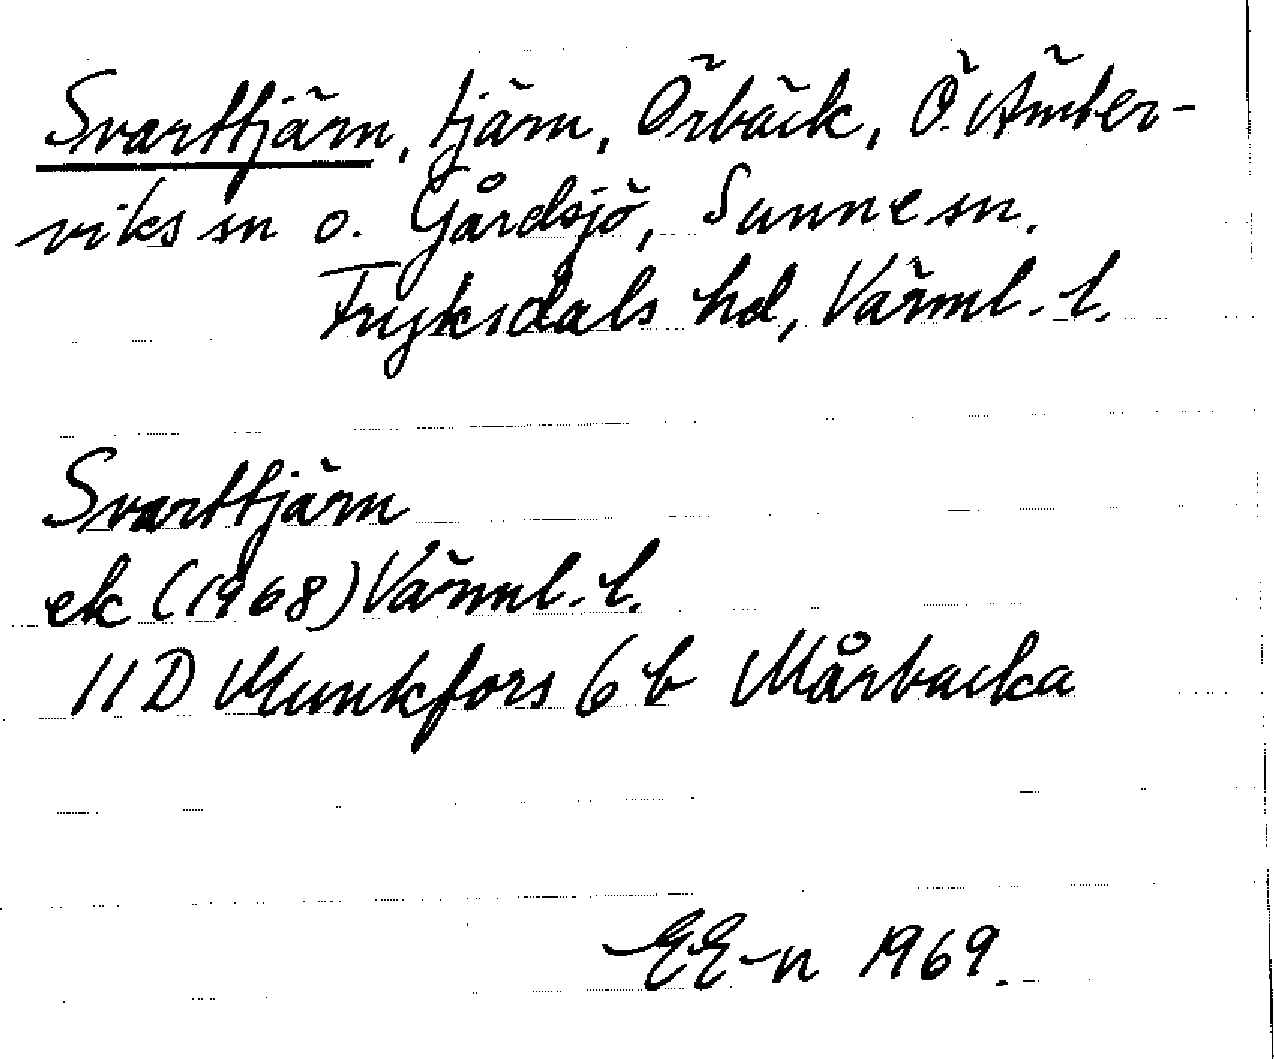 Svarttjärn, tjärn, Örbäck, Ö. Ämter-
viks sn o. Gårdsjö, Sunne sn.
Fryksdals hd, Värml. l.
Svarttjärn
ek (1968) Värml. l.
11D Munkfors 6b Mårbacka
EE-n 1969.